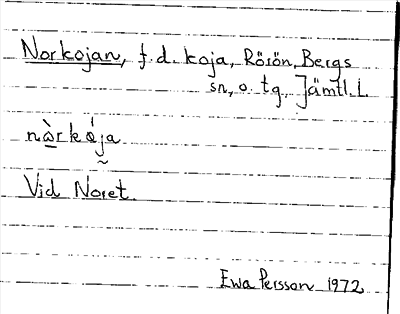 Norkojan, f.d. koja, Rösön, Bergs
sn, o. tg, Jämtl. L
nàrkája
Vid Noret.
Ewa Persson 1972